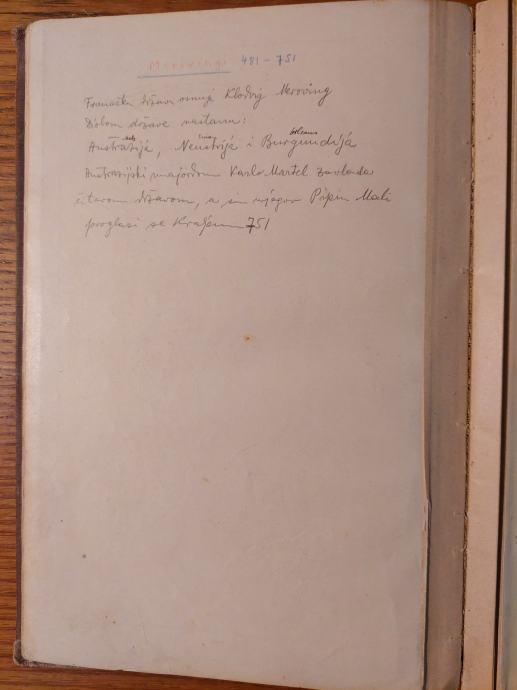 Merovingi 481 - 751
Franačku državu osniva Klodvig Meroving
Diobom države nastanu:
Austrazija, Neustrija i Burgundija
Austrazijski majordom Karlo Martel zavlada
čitavom državom, a sin njegov Pipin Mali
proglasi se Kraljem 751